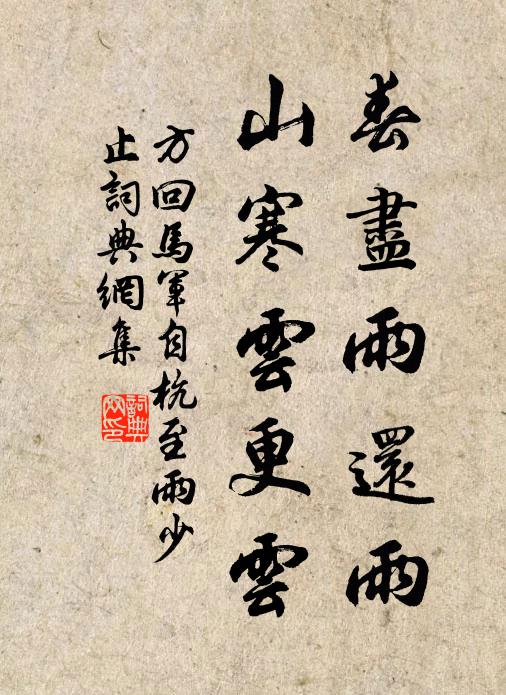 春盡雨還雨
山寒雲更雲
方回馬軍自杭至雨少
止詞典網集
詞典網印